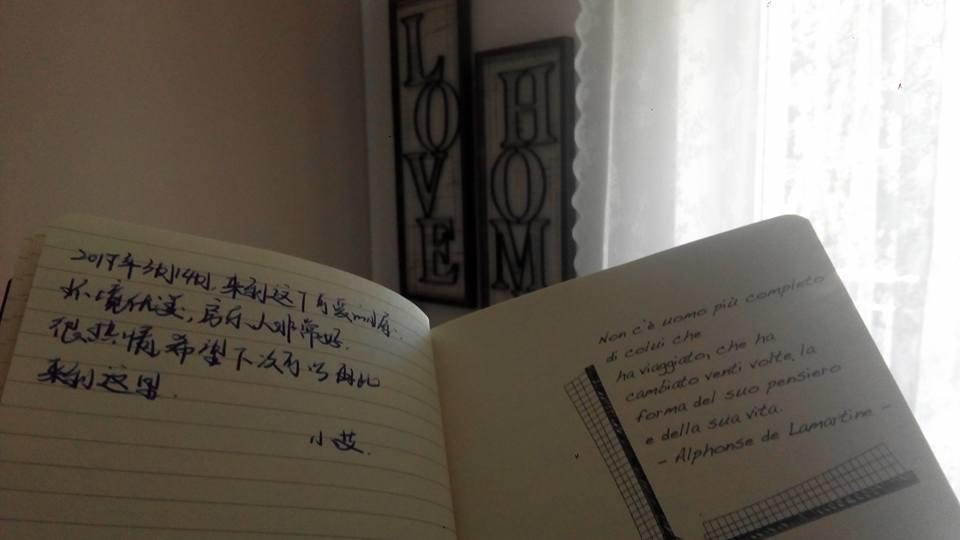 LOVE
HOM
年3月14日,来到这个可爱的房.
环境优美,房东人非常好.
很热情,希望下次可以
来到这里.
小艾.
Non c'è uomo più completo
di colui che
ha viaggiato, che ha
cambiato venti volte, la
forma del suo pensiero
e della sua vita.
- Alphonse de Lamartine -